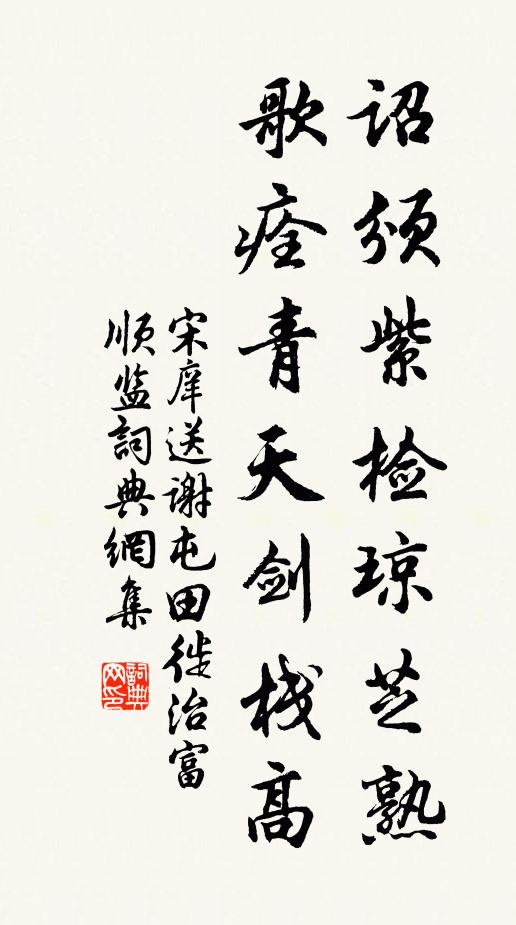 诏颁紫检琼芝熟
歌痊青天剑栈高
宋庠送谢屯田徙治富
顺监詞典網集
詞典网印